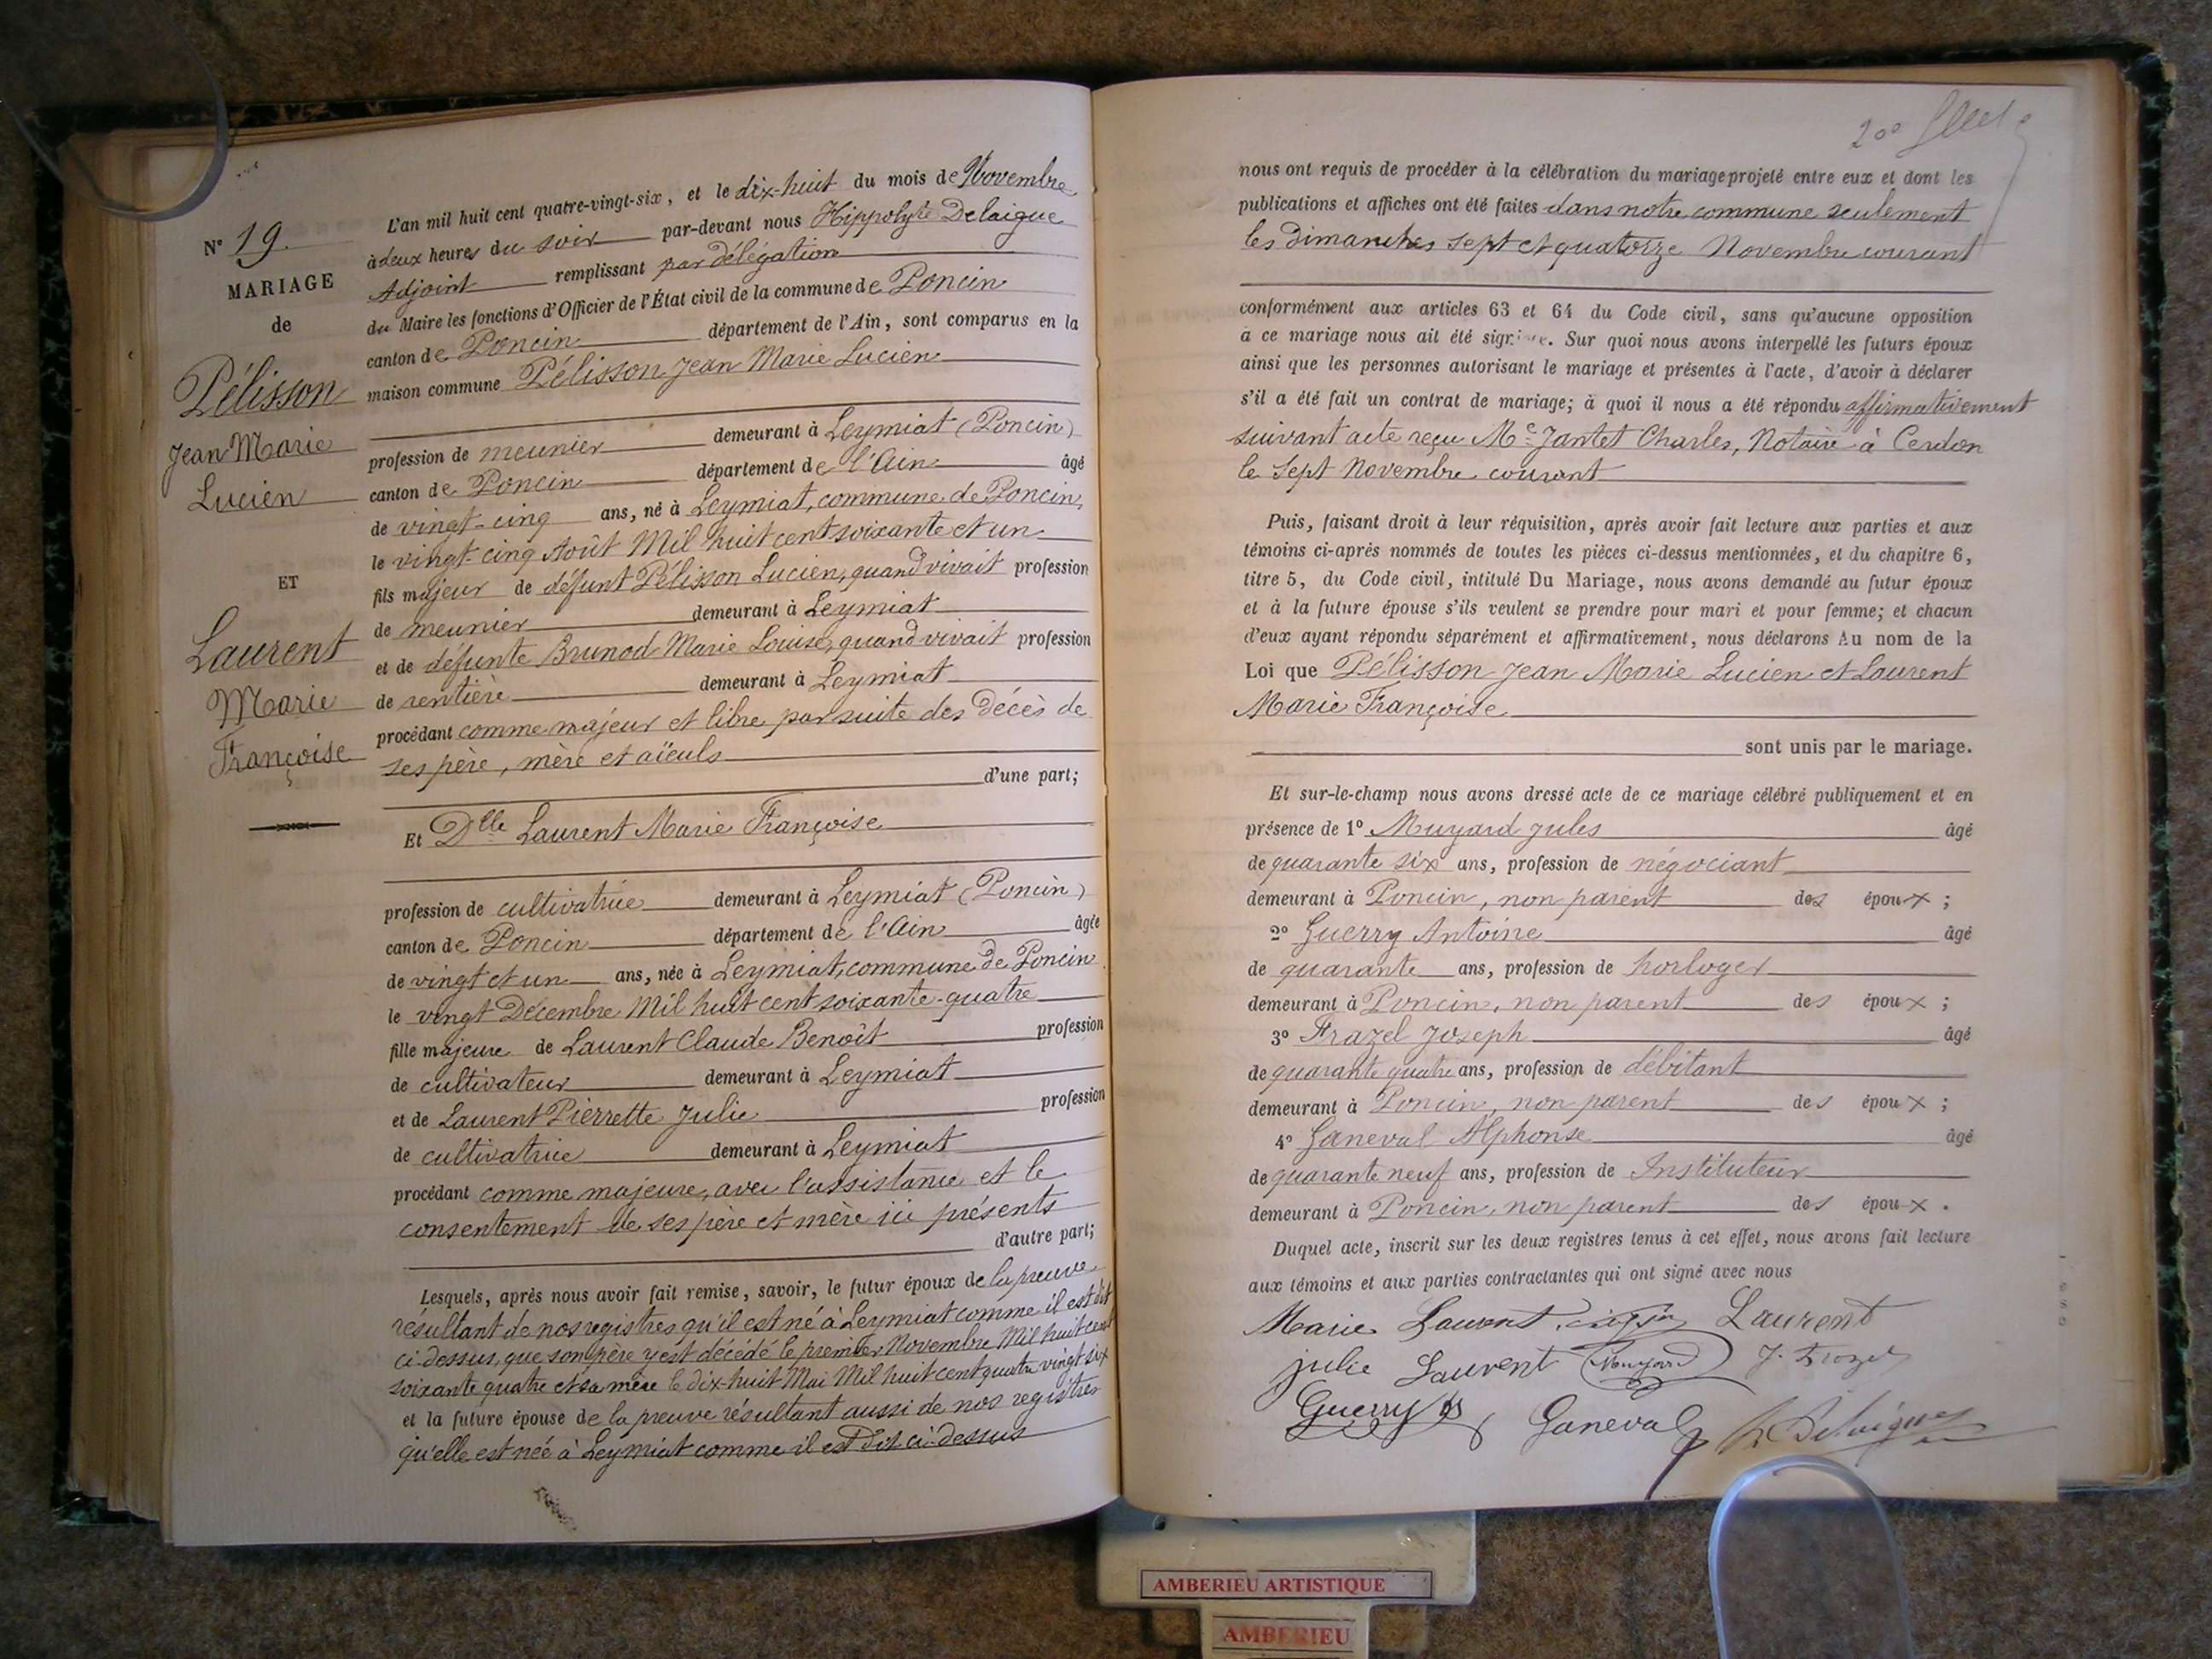 N° 19.
MARIAGE
de
Pélisson
Jean Marie
Lucien
ET
Laurent
Marie
Françoise
L'an mil huit cent quatre-vingt-six, et le dix-huit du mois de Novembre
à deux heures du soir par-devant nous Hippolyte Delaigue
Adjoint remplissant par délégation
du Maire les fonctions d'Officier de l'État civil de la commune de Poncin
canton de Poncin département de l'Ain, sont comparus en la
maison commune Pélisson Jean Marie Lucien
profession de meunier demeurant à Leymiat (Poncin)
canton de Poncin département de l'Ain âgé
de vingt-cinq ans, né à Leymiat, commune de Poncin,
le vingt-cinq Août Mil huit cent soixante et un
fils majeur de défunt Pélisson Lucien, quand vivait profession
de meunier demeurant à Leymiat
et de défunte Brunod Marie Louise, quand vivait profession
de rentière demeurant à Leymiat
procédant comme majeur et libre par suite des décès de
ses père, mère et aïeuls
d'une part;
Et Dlle Laurent Marie Françoise
profession de cultivatrice demeurant à Leymiat (Poncin)
canton de Poncin département de l'Ain âgée
de vingt et un ans, née à Leymiat, commune de Poncin
le vingt Décembre Mil huit cent soixante-quatre
fille majeure de Laurent Claude Benoît profession
de cultivateur demeurant à Leymiat
et de Laurent Pierrette Julie profession
de cultivatrice demeurant à Leymiat
procédant comme majeure, avec l'assistance et le
consentement de ses père et mère ici présents
d'autre part;
Lesquels, après nous avoir fait remise, savoir, le futur époux de la preuve
résultant de nos registres qu'il est né à Leymiat comme il est dit
ci-dessus, que son père y est décédé le premier Novembre Mil huit cent
soixante quatre et sa mère le dix-huit Mai Mil huit cent quatre vingt six
et la future épouse de la preuve résultant aussi de nos registres
qu'elle est née à Leymiat comme il est dit ci-dessus
20e
nous ont requis de procéder à la célébration du mariage projeté entre eux et dont les
publications et affiches ont été faites dans notre commune seulement
les Dimanches sept et quatorze Novembre courant
conformément aux articles 63 et 64 du Code civil, sans qu'aucune opposition
à ce mariage nous ait été signifiée. Sur quoi nous avons interpellé les futurs époux
ainsi que les personnes autorisant le mariage et présentes à l'acte, d'avoir à déclarer
s'il a été fait un contrat de mariage; à quoi il nous a été répondu affirmativement
suivant acte reçu Me Jantet Charles, Notaire à Cerdon
le sept Novembre courant
Puis, faisant droit à leur réquisition, après avoir fait lecture aux parties et aux
témoins ci-après nommés de toutes les pièces ci-dessus mentionnées, et du chapitre 6,
titre 5, du Code civil, intitulé Du Mariage, nous avons demandé au futur époux
et à la future épouse s'ils veulent se prendre pour mari et pour femme; et chacun
d'eux ayant répondu séparément et affirmativement, nous déclarons Au nom de la
Loi que Pélisson Jean Marie Lucien et Laurent
Marie Françoise
sont unis par le mariage.
Et sur-le-champ nous avons dressé acte de ce mariage célébré publiquement et en
présence de 1° Muyard Jules âgé
de quarante six ans, profession de négociant
demeurant à Poncin, non parent des époux;
2° Guerry Antoine âgé
de quarante ans, profession de horloger
demeurant à Poncin, non parent des époux;
3° Frazel Joseph âgé
de quarante quatre ans, profession de débitant
demeurant à Poncin, non parent des époux;
4° Ganeval Alphonse âgé
de quarante neuf ans, profession de Instituteur
demeurant à Poncin, non parent des époux.
Duquel acte, inscrit sur les deux registres tenus à cet effet, nous avons fait lecture
aux témoins et aux parties contractantes qui ont signé avec nous
Marie Laurent Laurent
julie Laurent Muyard
Guerry Ganeval Delaigue
AMBERIEU ARTISTIQUE
AMBERIEU